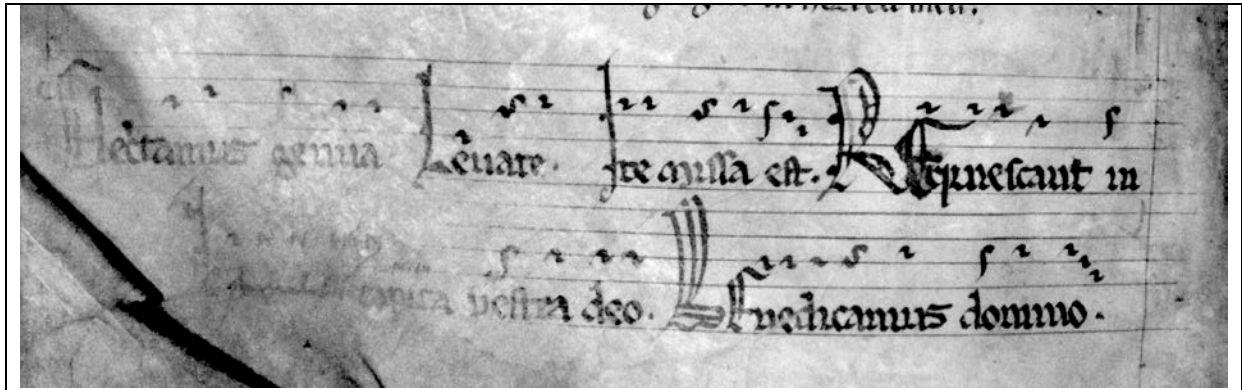 Flectamus genua Leuate. Ite missa est. Requiescant in
capita vestra deo. Benedicamus domino.